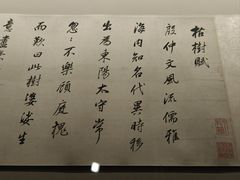 枯樹賦
殷仲文風流儒雅
海內知名代異時移
出為東陽太守常
忽忽不樂顧庭槐
而歎曰此樹婆娑生
意盡矣